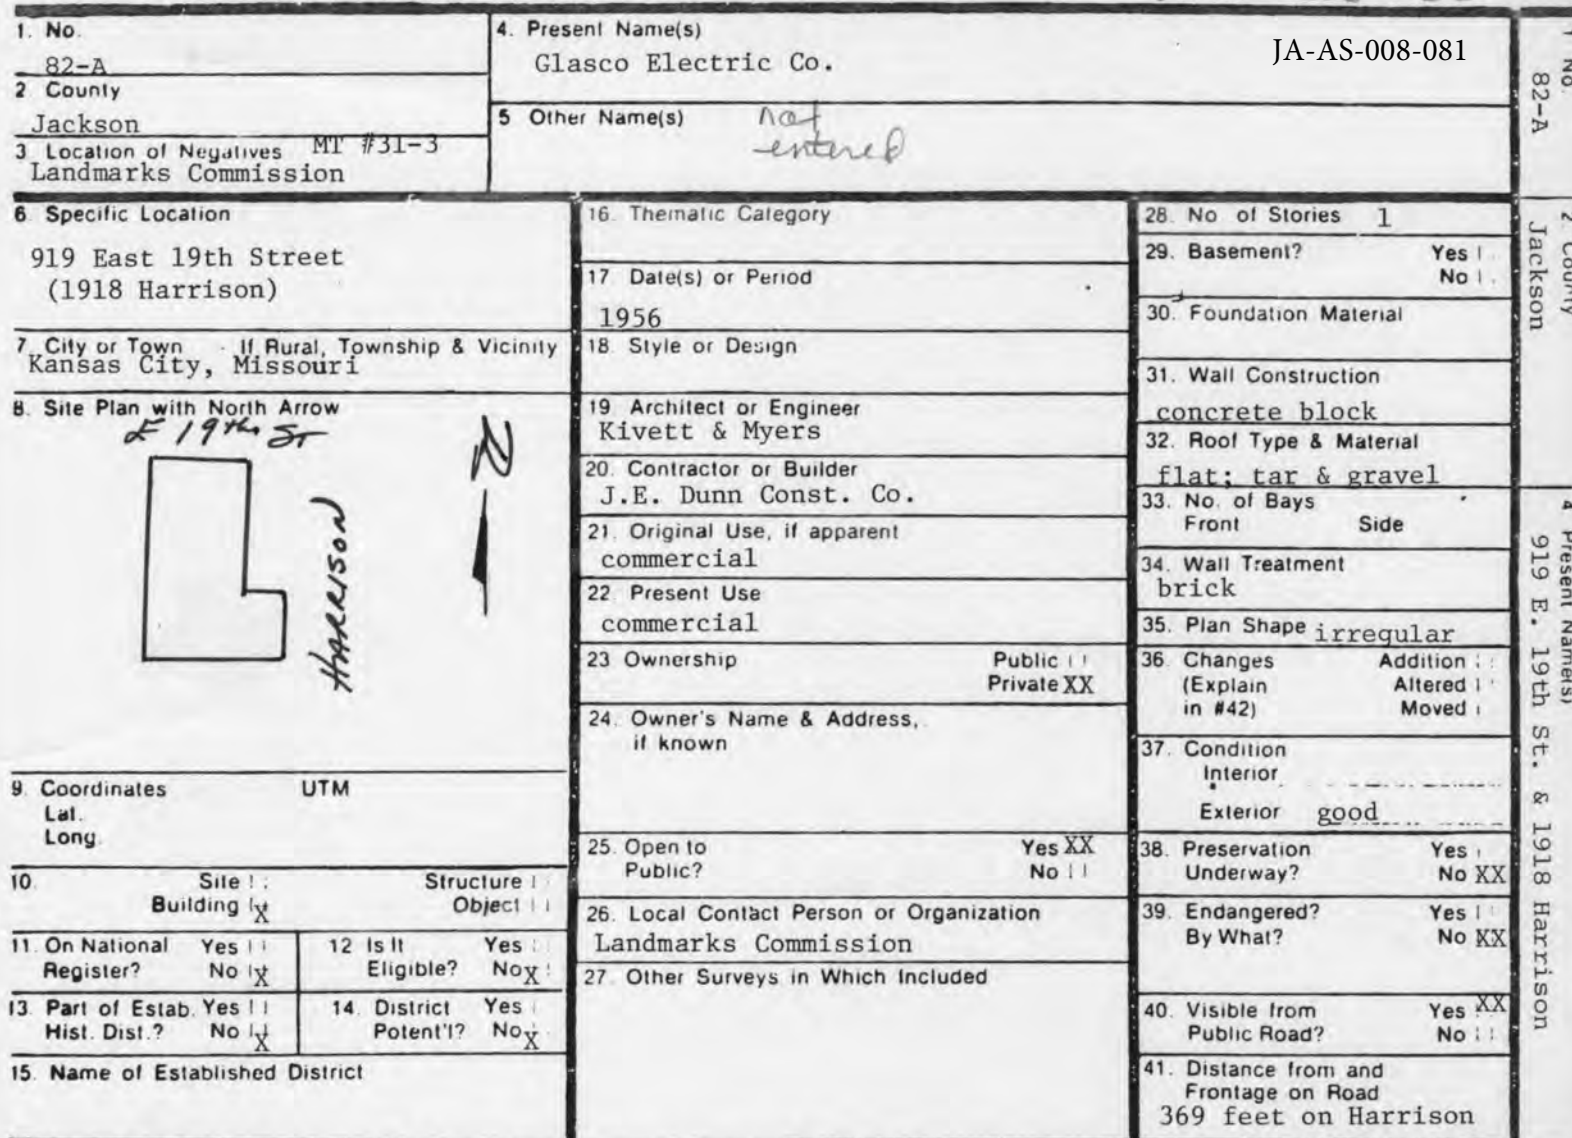 1. No.
82-A
2 County
Jackson
3 Location of Negatives MT #31-3
Landmarks Commission
4. Present Name(s)
Glasco Electric Co.
JA-AS-008-081
5 Other Name(s) not
entered
6. Specific Location
919 East 19th Street
(1918 Harrison)
7. City or Town If Rural, Township & Vicinity
Kansas City, Missouri
8. Site Plan with North Arrow
E 19th St
N
HARRISON
9. Coordinates UTM
Lat.
Long.
10. Site Structure
Building X Object
11. On National Yes
Register? No X
12 Is It Yes
Eligible? No X
13. Part of Estab. Yes
Hist. Dist.? No X
14. District Yes
Potent'l? No X
15. Name of Established District
16. Thematic Category
17 Date(s) or Period
1956
18. Style or Design
19. Architect or Engineer
Kivett & Myers
20. Contractor or Builder
J.E. Dunn Const. Co.
21. Original Use, if apparent
commercial
22. Present Use
commercial
23 Ownership Public
Private XX
24. Owner's Name & Address,
if known
25. Open to Yes XX
Public? No
26. Local Contact Person or Organization
Landmarks Commission
27. Other Surveys in Which Included
28. No of Stories 1
29. Basement? Yes
No
30. Foundation Material
31. Wall Construction
concrete block
32. Roof Type & Material
flat; tar & gravel
33. No. of Bays
Front Side
34. Wall Treatment
brick
35. Plan Shape irregular
36. Changes Addition
(Explain Altered
in #42) Moved
37. Condition
Interior
Exterior good
38. Preservation Yes
Underway? No XX
39. Endangered? Yes
By What? No XX
40. Visible from Yes XX
Public Road? No
41. Distance from and
Frontage on Road
369 feet on Harrison
1 No.
82-A
2 County
Jackson
4 Present Name(s)
919 E. 19th St. & 1918 Harrison